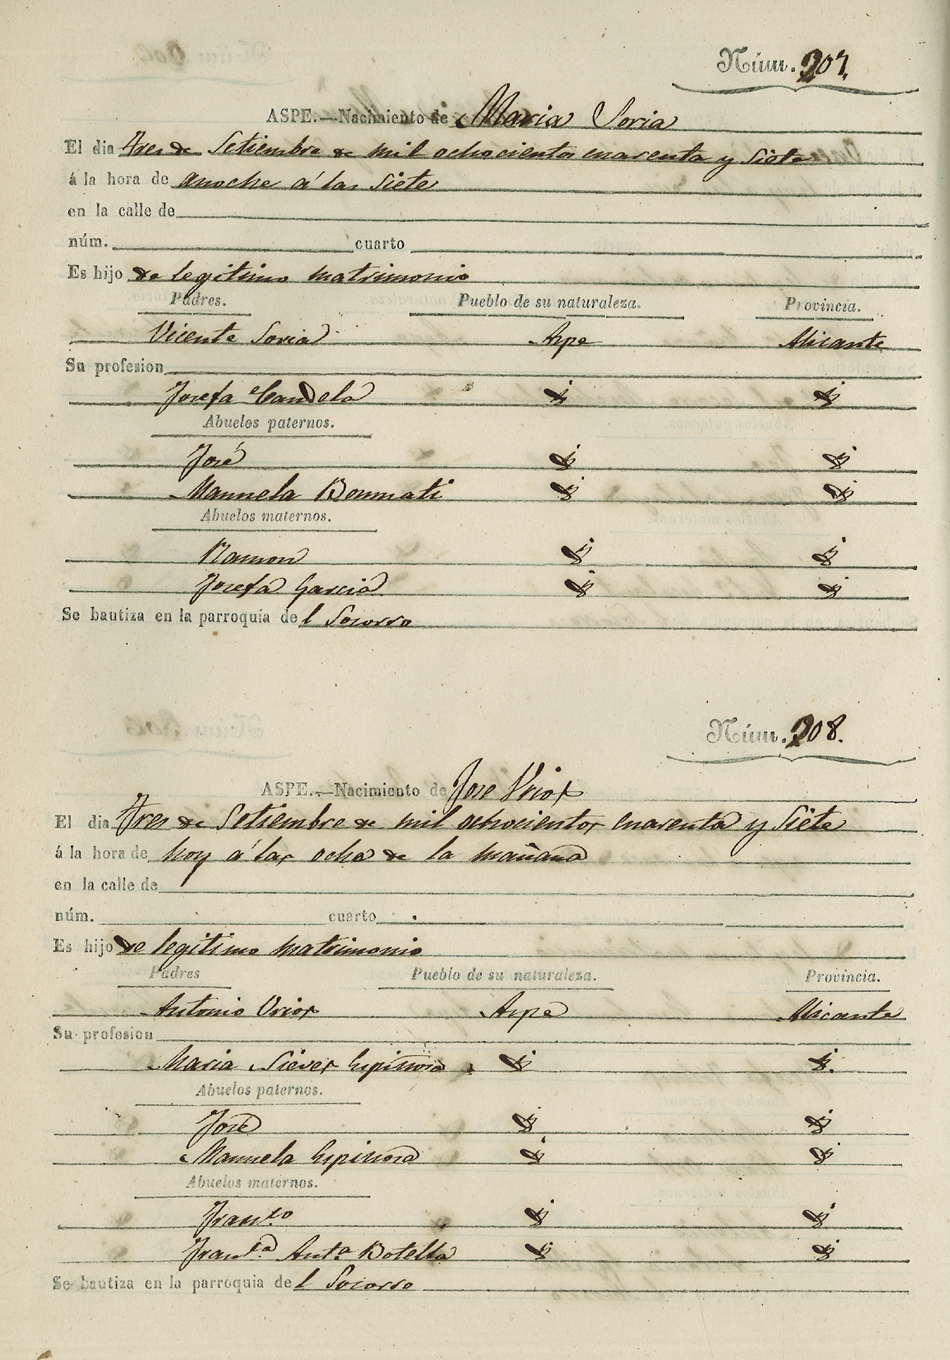 Núm. 207.
ASPE.—Nacimiento de Maria Soria
El dia tres de Setiembre de mil ochocientos cuarenta y Siete
á la hora de anoche á las Siete
en la calle de
núm. cuarto
Es hijo de legitimo matrimonio
Padres. Pueblo de su naturaleza. Provincia.
Vicente Soria Aspe Alicante
Su profesion
Josefa Candela
Abuelos paternos.
José
Manuela Boumati
Abuelos maternos.
Ramon
Josefa Garcia
Se bautiza en la parroquia del Socorro
Núm. 208.
ASPE.—Nacimiento de Jose Urios
El dia Tres de Setiembre de mil ochocientos cuarenta y Siete
á la hora de hoy á las ocho de la mañana
en la calle de
núm. cuarto
Es hijo de legitimo matrimonio
Padres Pueblo de su naturaleza. Provincia.
Antonio Urios Aspe Alicante
Su profesion
Maria Nieves Espinosa
Abuelos paternos.
José
Manuela Espinosa
Abuelos maternos.
Franco
Franca Anta Botella
Se bautiza en la parroquia del Socorro